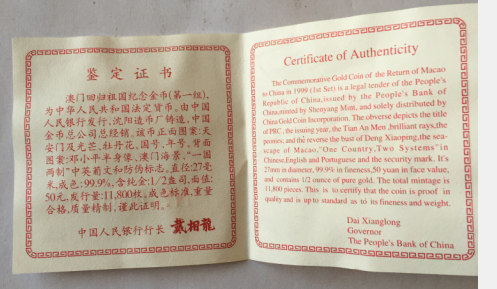 鉴定证书
澳门回归祖国纪念金币(第一组),
为中华人民共和国法定货币,由中国
人民银行发行,沈阳造币厂铸造,中国
金币总公司总经销,该币正面图案:天
安门及光芒、牡丹花、国号、年号,背面
图案:邓小平半身像、澳门海景、“一国
两制”中英葡文和防伪标志,直径:27毫
米,成色:99.9%,含纯金:1/2盎司,面值:
50元,发行量:11,800枚,成色标准,重量
合格,质量精制,谨此证明。
中国人民银行行长 戴相龍
Certificate of Authenticity
The Commemorative Gold Coin of the Return of Macao
to China in 1999 (1st Set) is a legal tender of the People's
Republic of China,issued by the People's Bank of
China,minted by Shenyang Mint, and solely distributed by
China Gold Coin Incorporation. The obverse depicts the title
of PRC, the issuing year, the Tian An Men ,brilliant rays,the
peonies; and the reverse the bust of Deng Xiaoping,the sea-
scape of Macao,"One Country,Two Systems"in
Chinese,English and Portuguese and the security mark. It's
27mm in diameter, 99.9% in fineness,50 yuan in face value,
and contains 1/2 ounce of pure gold. The total mintage is
11,800 pieces. This is to certify that the coin is proof in
quality and is up to standard as to its fineness and weight.
Dai Xianglong
Governor
The People's Bank of China